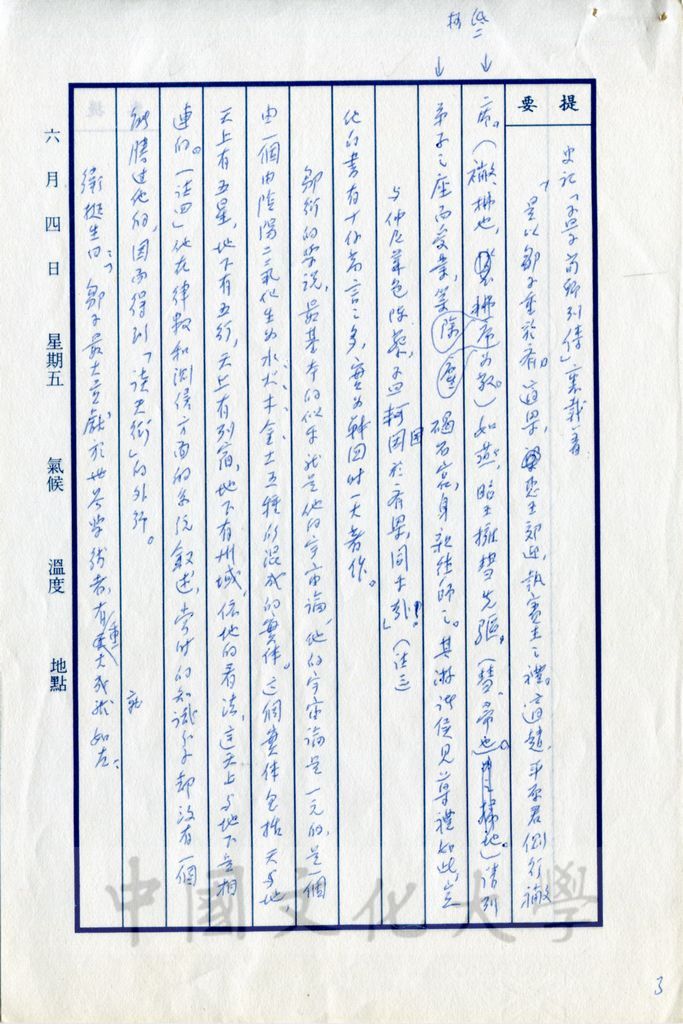 提要
史記「孟子荀卿列傳」裏載著：
「是以鄒子重於齊。適梁，惠王郊迎，執賓主之禮。適趙，平原君側行襒
席。（襒，拂也，拂席為敬。）如燕，昭王擁彗先驅。（彗，帚也，掃地。）請列
弟子之座而受業，築碣石宮，身親往師之。其游諸侯見尊禮如此，豈
與仲尼菜色陳蔡，孟軻困於齊梁，同乎哉！」（註三）
他的書有十餘萬言之多，實為戰國時一大著作。
鄒衍的學說，最基本的似乎就是他的宇宙論，他的宇宙論是一元的，是一個
由一個由陰陽二氣化生為水火木金土五種所混成的實体。這個實体包括天与地，
天上有五星，地下有五行，天上有列宿，地下有州域，依他的看法，這天上与地下是相
連的。（註四）他在律數和測候方面的系統敘述，當時的知識分子却沒有一個
能勝過他的，因而得到「談天衍」的外號。
衛挺生曰：鄒子最大貢獻於世界學術者，有重大成就如左：
六月四日 星期五 氣候 溫度 地點
中國文化大學
3